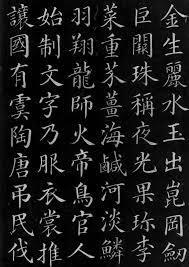 金生麗水玉出崑岡劒
巨闕珠稱夜光果珎李
菜重芥薑海鹹河淡鱗
羽翔龍師火帝鳥官人
始制文字乃服衣裳推
讓國有虞陶唐吊民伐